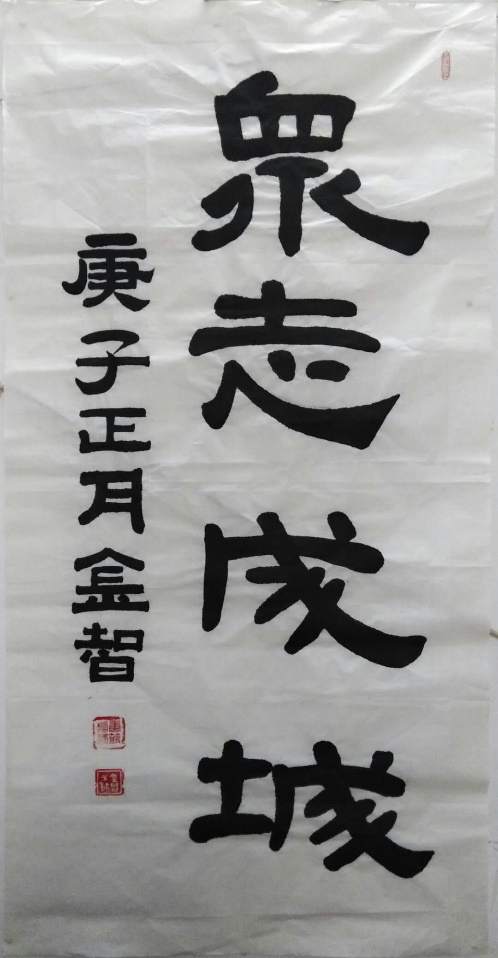 眾志成城
庚子正月金智